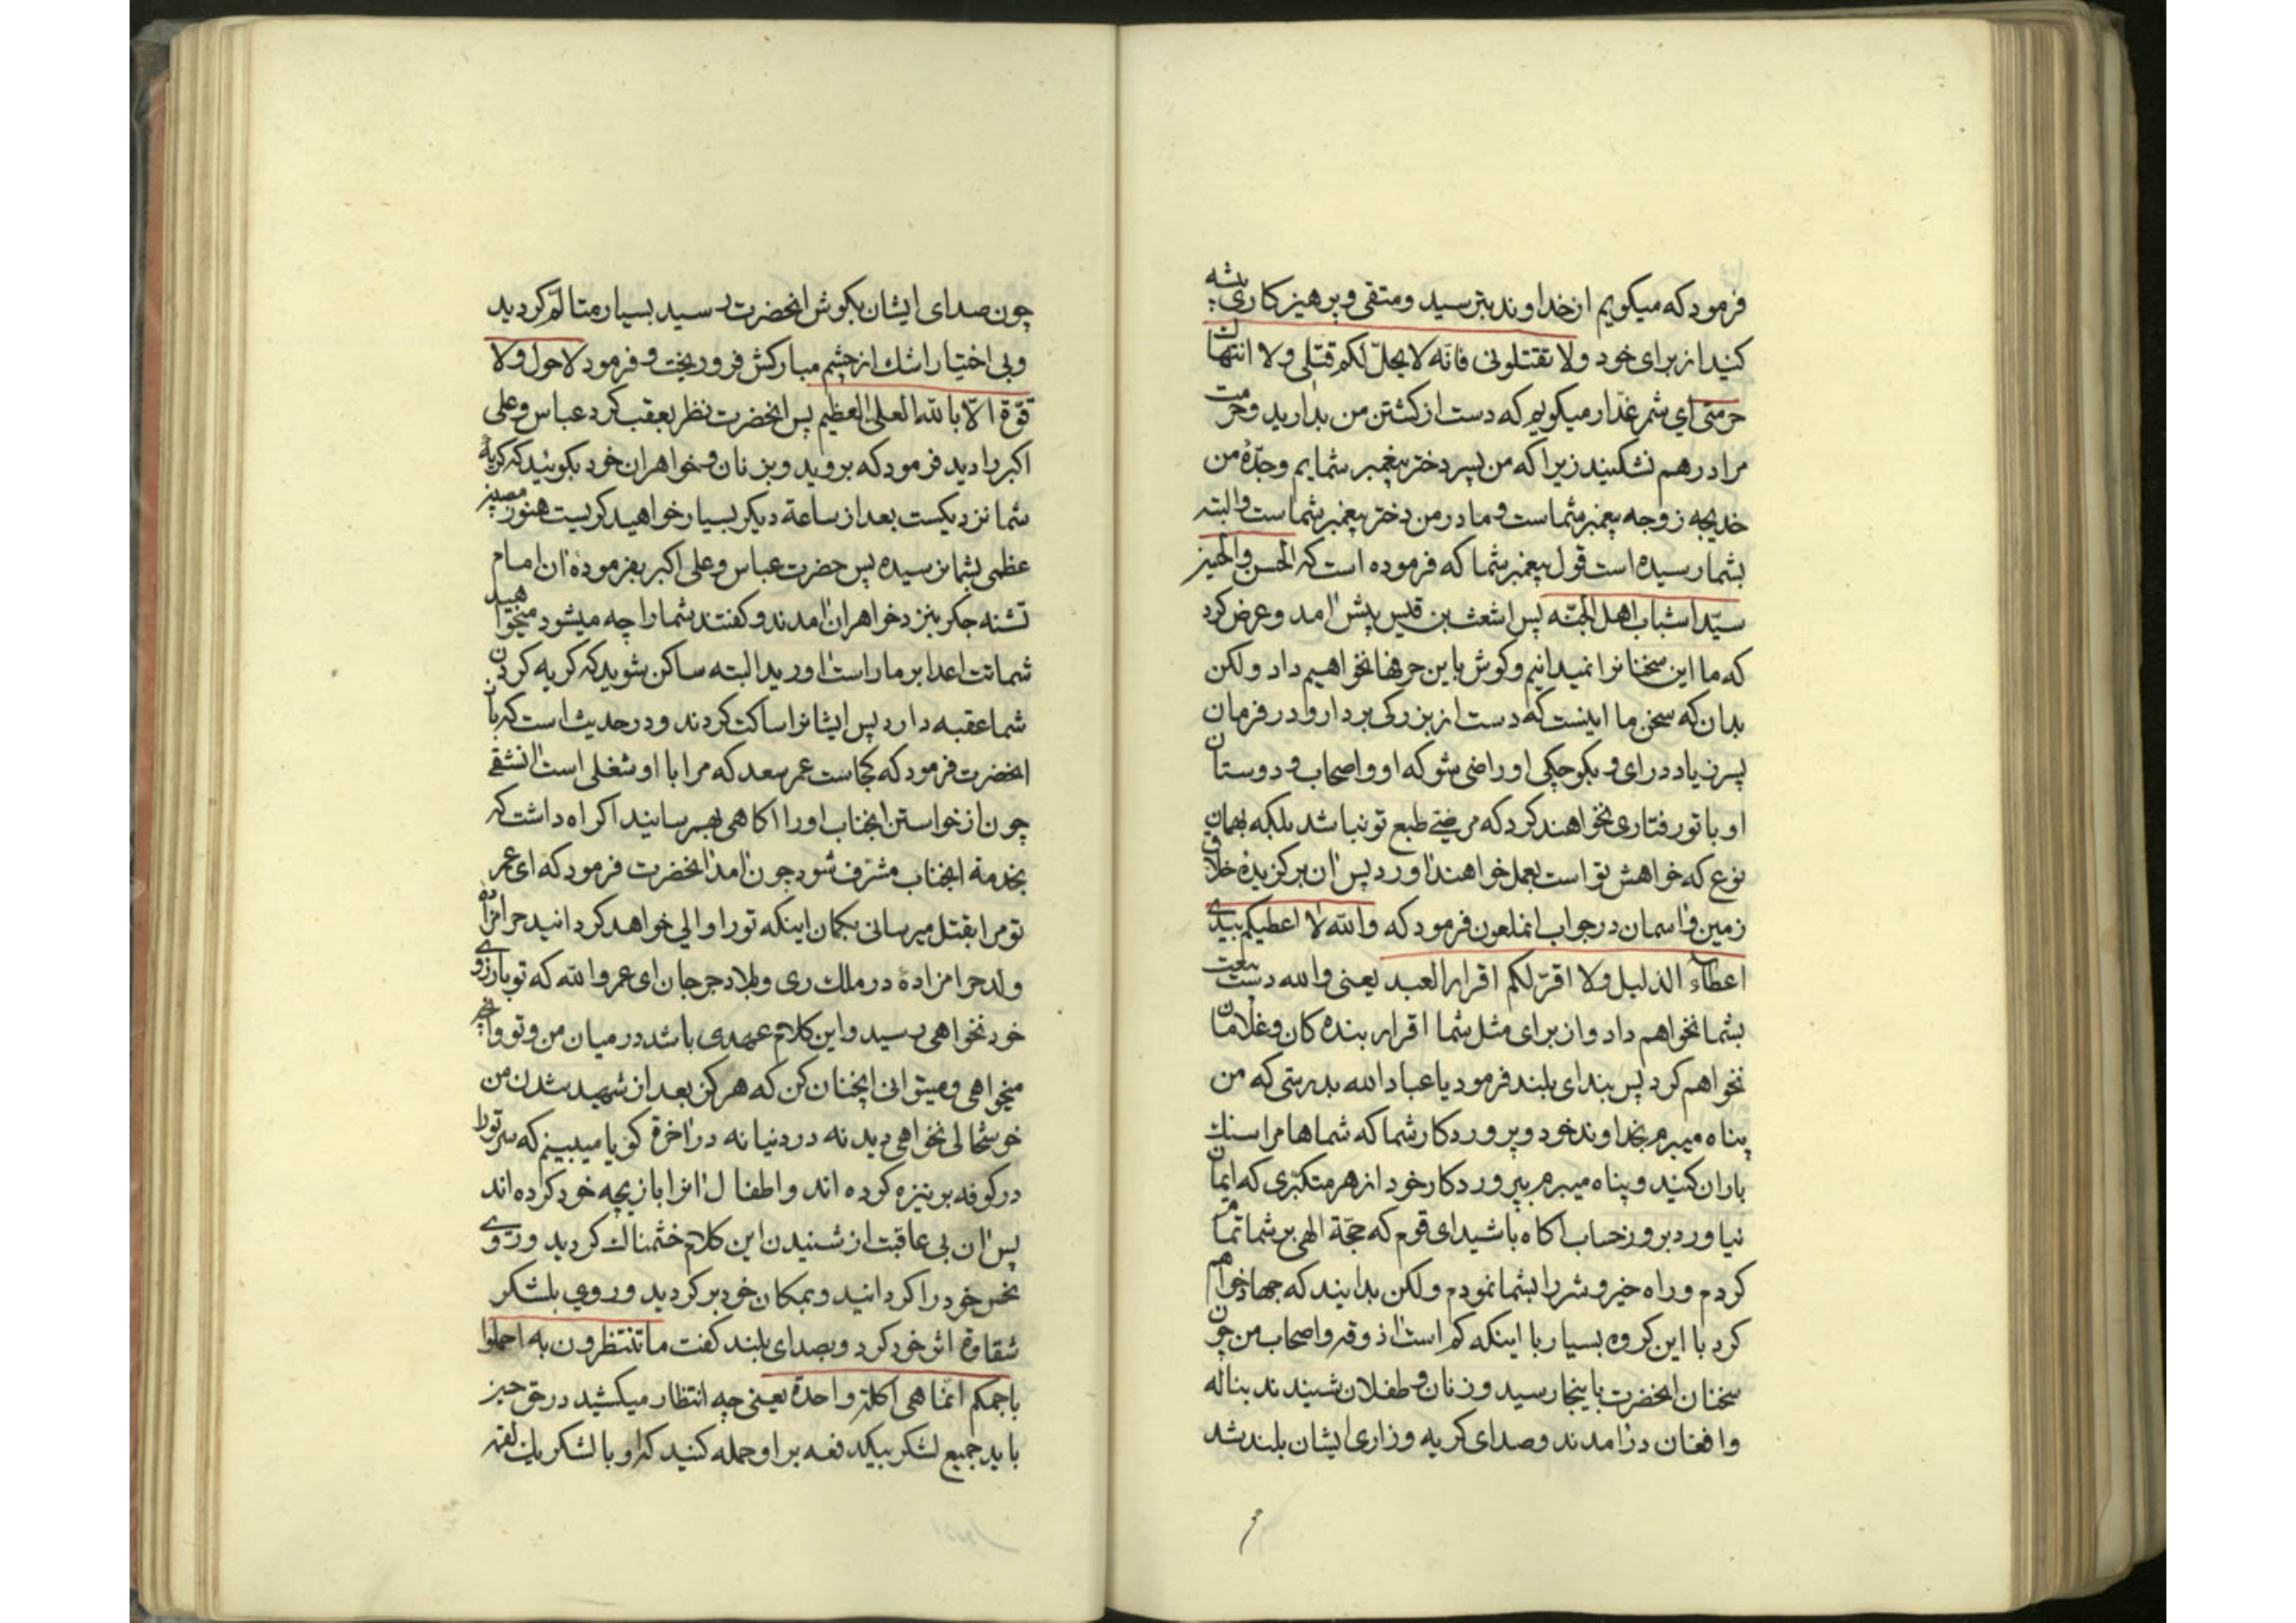 فرمود که میکویم از خداوند بترسید ومتقی وپرهیز کاری پیشه
کنید از برای خود ولا تقتلونی فانّه لا یحلّ لکم قتلی ولا انتهاك
حرمتی ای شمر غدّار میکویم که دست از کشتن من بدارید وحرمت
مرا درهم نشکنید زیرا که من پسر دختر پیغمبر شمایم وجدّهٔ من
خدیجه زوجه پیغمبر شماست و مادر من دختر پیغمبر شماست والبته
بشما رسیده است قول پیغمبر شما که فرموده است که الحسن والحسین
سیّدا شباب اهل الجنّه پس اشعث بن قیس پیش امد وعرض کرد
که ما این سخنانرا نمیدانیم وکوش باین حرفها نخواهیم داد ولکن
بدان که سخن ما اینست که دست از بزرکی بردار ودر فرمان
پسر زیاد درای و بکوچکی او راضی شو که او واصحاب و دوستان
او با تو رفتاری نخواهند کرد که مرضیّ طبع تو نباشد بلکه بهمان
نوع که خواهش تو است بعمل خواهند اورد پس ان برکزیدهٔ خلاق
زمین واسمان در جواب انملعون فرمود که والله لا اعطیکم بیدی
اعطاء الذلیل ولا اقرّ لکم اقرار العبد یعنی والله دست بیعت
بشما نخواهم داد واز برای مثل شما اقرار بنده کان وغلامان
نخواهم کرد پس بندای بلند فرمود یا عباد الله بدرستی که من
پناه میبرم بخداوند خود وپروردکار شما که شماها مرا سنك
باران کنید و پناه میبرم بپروردکار خود از هر متکبّری که ایمان
نیاورد بروز حساب اکاه باشید ای قوم که حجّة الهی بر شما تمام
کردم وراه خیر وشر را بشما نمودم ولکن بدانید که جهاد خواهم
کرد با این کروه بسیار با اینکه کم است اذوقه واصحاب من چون
سخنان انحضرت باینجا رسید وزنان وطفلان شنیدند بناله
وافغان درامدند وصدای کریه وزاری ایشان بلند شد
چون صدای ایشان بکوش انحضرت رسید بسیار متالّم کردید
وبی اختیار اشك از چشم مبارکش فرو ریخت و فرمود لا حول ولا
قوّة الّا بالله العلی العظیم پس انحضرت نظر بعقب کرد عباس وعلی
اکبر را دید فرمود که بروید وبزنان وخواهران خود بکوئید که کریهٔ
شما نزدیکست بعد از ساعة دیکر بسیار خواهید کریست هنوز مصیبت
عظمی بشما نرسیده پس حضرت عباس وعلی اکبر بفرمودهٔ ان امام
تشنه جکر بنزد خواهران امدند وکفتند شما را چه میشود میخواهید
شماتت اعدا بر ما راست اورید البته ساکن شوید که کریه کردن
شما عقبه دارد پس ایشانرا ساکت کردند ودر حدیث است که بان
انحضرت فرمود که کجاست عمر سعد که مرا با او شغلی است انشقی
چون از خواستن انجناب او را اکاهی بهم رسانیدند اکراه داشت که
بخدمة انجناب مشرّف شود چون امد انحضرت فرمود که ای عمر
تو مرا بقتل میرسانی بکمان اینکه تو را والی خواهد کردانید حرامزاده
ولد حرامزادهٔ در ملك ری وبلاد جرجان ای عمر والله که تو بارزوی
خود نخواهی رسید واین کلام عهدی باشد در میان من وتو وانچه
میخواهی ومیتوانی انچنان کن که هرکز بعد از شهید شدن من
خوشحالی نخواهی دید نه در دنیا نه در اخرة کویا میبینم که سر تو را
در کوفه بر نیزه کرده اند واطفال انرا بازیچه خود کرده اند
پس ان بی عاقبت از شنیدن این کلام خشمناك کردید وروی
نحس خود را کردانید وبمکان خود برکردید وروی بلشکر
شقاوة اثر خود کرد وبصدای بلند کفت ما تنتظرون به احملوا
باجمعکم انّما هی اکلة واحدة یعنی چه انتظار میکشید در حق حسین
باید جمیع لشکر بیکدفعه بر او حمله کنید که او با لشکر یك لقمه